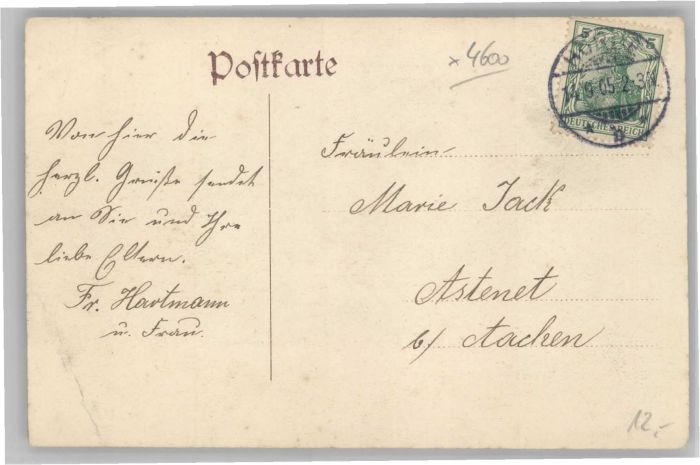 Postkarte
x 4600
5 5
9.05.2-3
DEUTSCHES REICH
Von hier die
herzl. Grüße sendet
an Sie und Ihre
liebe Eltern.
Fr. Hartmann
u. Frau.
Fräulein
Marie Jack
Astenet
b/ Aachen
12,-